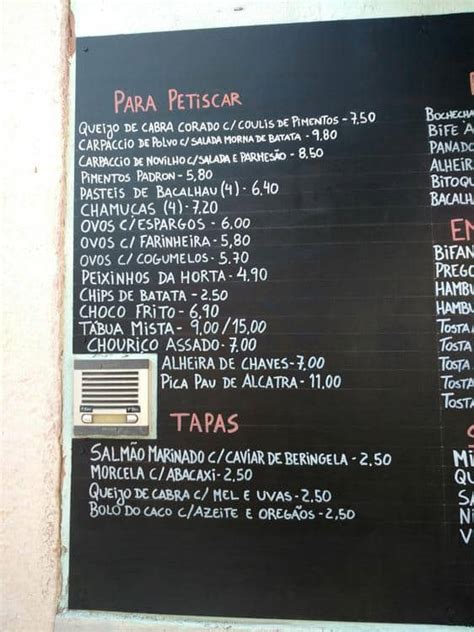 PARA PETISCAR
QUEIJO DE CABRA CORADO C/COULIS DE PIMENTOS - 7,50
CARPACCIO DE POLVO C/SALADA MORNA DE BATATA - 9,80
CARPACCIO DE NOVILHO C/SALADA E PARMESÃO - 8,50
PIMENTOS PADRON - 5,80
PASTEIS DE BACALHAU (4) - 6,40
CHAMUÇAS (4) - 7,20
OVOS C/ESPARGOS - 6.00
OVOS C/ FARINHEIRA - 5,80
OVOS C/COGUMELOS - 5.70
PEIXINHOS DA HORTA - 4.90
CHIPS DE BATATA - 2.50
CHOCO FRITO - 6,90
TÁBUA MISTA - 9,00/15,00
CHOURIÇO ASSADO - 7,00
ALHEIRA DE CHAVES - 7,00
PICA PAU DE ALCATRA - 11,00
TAPAS
SALMÃO MARINADO C/CAVIAR DE BERINGELA - 2,50
MORCELA C/ABACAXI - 2,50
QUEIJO DE CABRA C/ MEL E UVAS - 2,50
BOLO DO CACO C/AZEITE E OREGÃOS - 2,50
BOCHECHA
BIFE À
PANADO
ALHEIRA
BITOQU
BACALH
EM
BIFAN
PREGO
HAMBU
HAMBU
TOSTA
TOSTA
TOSTA
TOSTA